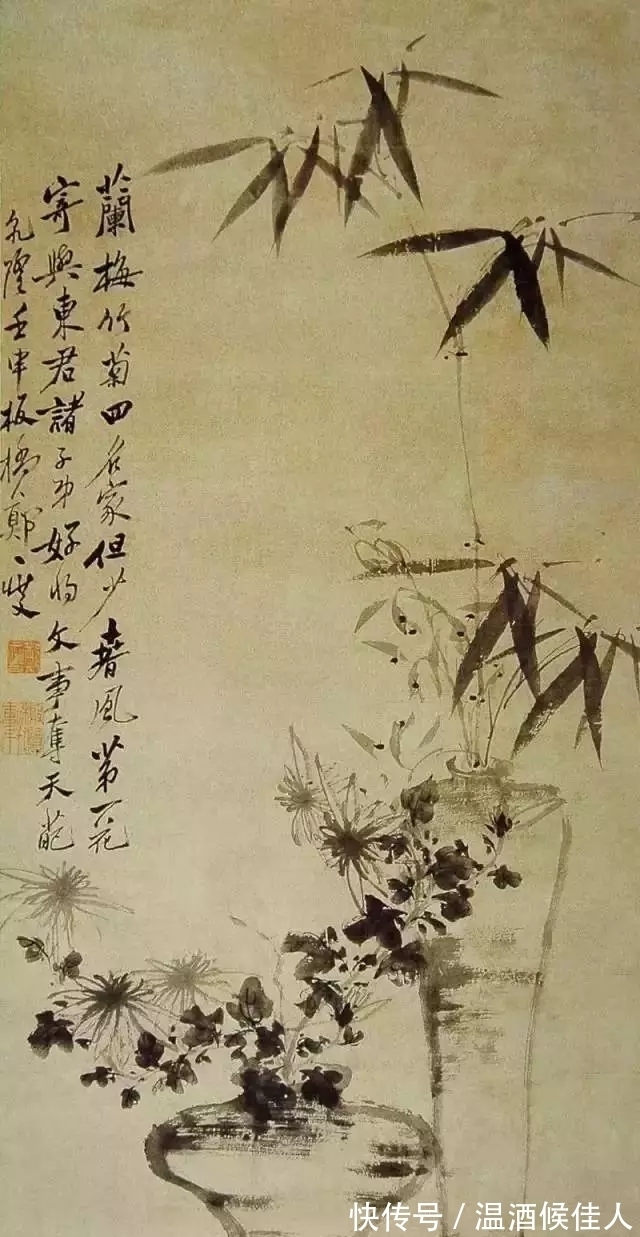 蘭梅竹菊四名家但少春風第一花
寄與東君諸子弟好將文事奪天葩
乾隆壬申板橋鄭燮
快传号 / 温酒候佳人